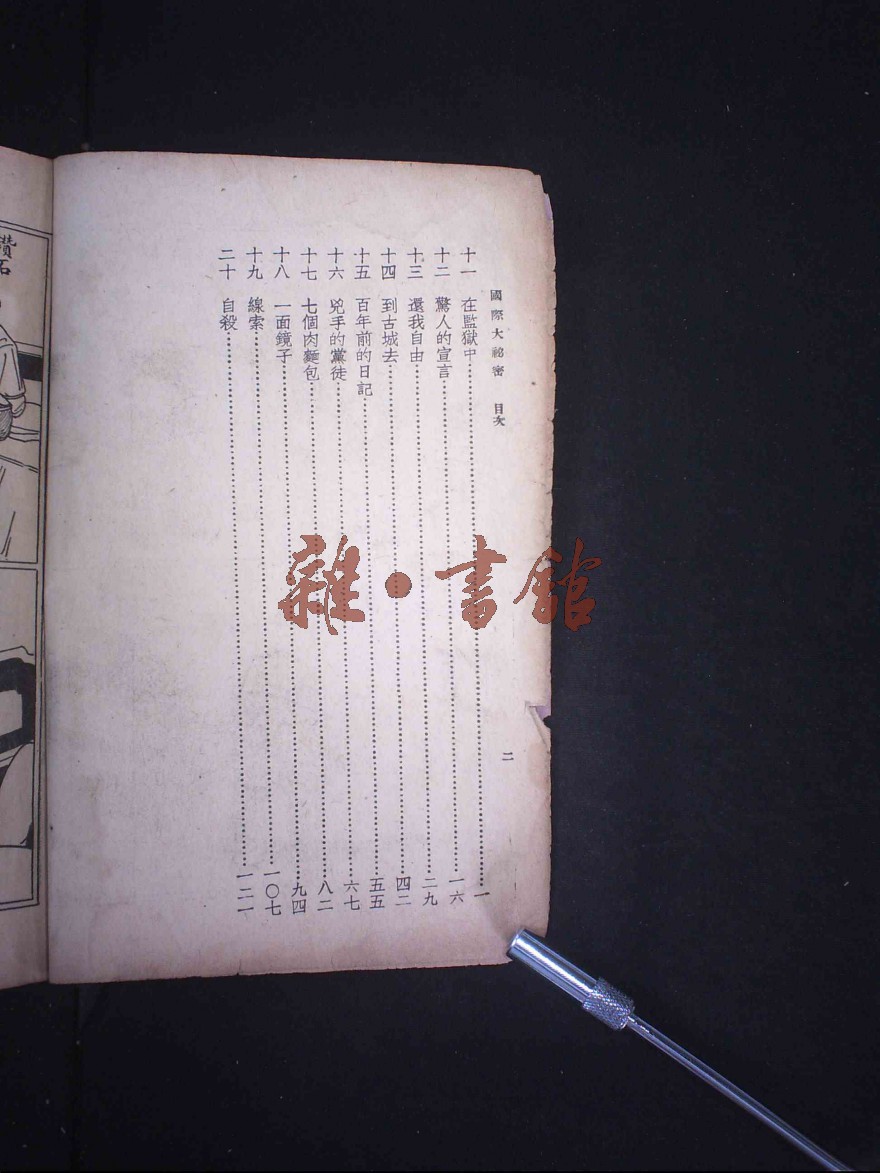 國際大祕密 目次 二
十一 在監獄中……一
十二 驚人的宣言……一六
十三 還我自由……二九
十四 到古城去……四二
十五 百年前的日記……五五
十六 兇手的黨徒……六七
十七 七個肉麵包……八二
十八 一面鏡子……九四
十九 線索……一〇七
二十 自殺……一二一
雜·書館